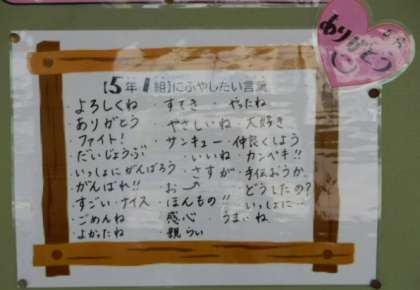 ありがとう
【5年 1組】にふやしたい言葉
・よろしくね ・すてき ・やったね
・ありがとう ・やさしいね ・大好き
・ファイト! ・サンキュー ・仲良くしよう
・だいじょうぶ ・いいね ・カンペキ!!
・いっしょにがんばろう ・さすが ・手伝おうか
・がんばれ!! ・お〜 ・どうしたの?
・すごい ・ナイス ・ほんもの!! ・いっしょに…
・ごめんね ・感心 ・うまいね
・よかったね ・親らい